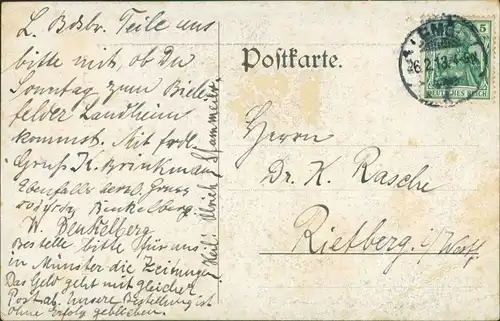 L. Bdsbr. Teile uns
bitte mit, ob Du
Sonntag zum Biele-
felder Landheim
kommst. Mit frdl.
Gruß K. Brinkmann
Ebenfalls Gruss
Benkelberg.
W. Benkelberg
Bestelle bitte für uns
in Münster die Zeitungen
Das Geld geht mit gleicher
Post ab. Unsere Bestellung ist
ohne Erfolg geblieben.
Heil! Ulrich Stammeier
Postkarte.
26.2.13.4-5N
5
DEUTSCHES REICH
Herrn
Dr. K. Rasche
Rietberg i/Westf.